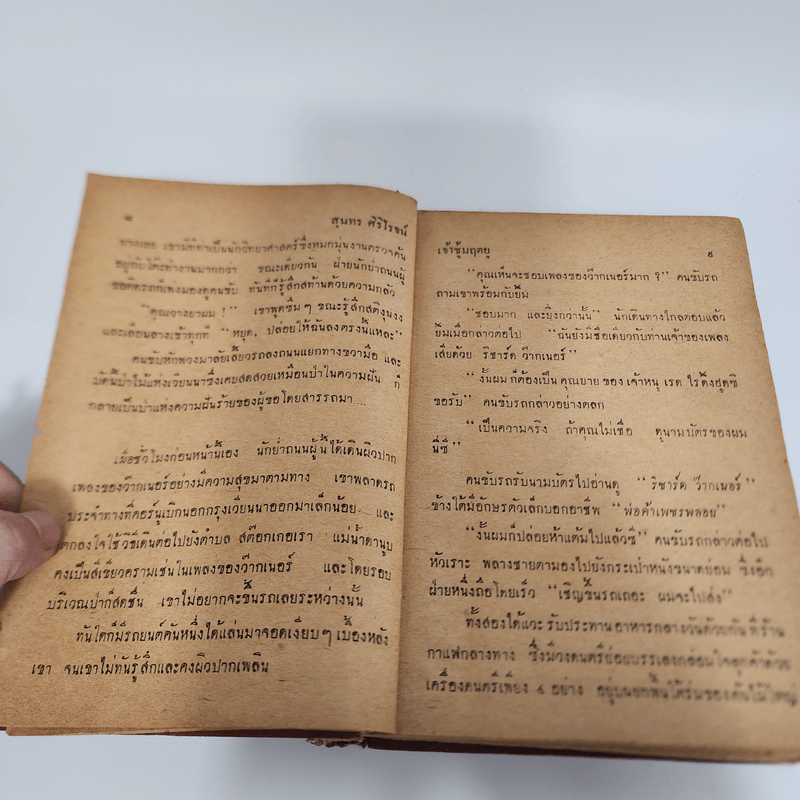 ๘
สุนทร ศิริโรจน์
ทางเลย เขามีท่าเป็นนักวิทยาศาสตร์ซึ่งหมกมุ่นงานตรวจค้น
อยู่กับโต๊ะทำงานมากกว่า ขณะเดียวกัน ฝ่ายนักย่ำถนนผู้
ทันทีก็รู้สึกสท้านด้วยความกลัว
“คุณวางยาผม !” เขาพูดซึมๆ ขณะรู้สึกสติงุนงง
และเลือนลางเข้าทุกที “หยุด, ปล่อยให้ฉันลงตรงนี้แหละ”
คนขับหักพวงมาลัยเลี้ยวรถลงถนนแยกทางขวามือ และ
บัดนั้นป่าไม้แห่งเวียนนาซึ่งเคยสดสวยเหมือนป่าในความฝัน ก็
กลายเป็นป่าแห่งความฝันร้ายของผู้ขอโดยสารรถมา....
เมื่อชั่วโมงก่อนหน้านี้เอง นักย่ำถนนผู้นี้ได้เดินผิวปาก
เพลงของว๊ากเนอร์อย่างมีความสุขมาตามทาง เขาพลาดรถ
ประจำทางที่คอร์นูเบิกนอกกรุงเวียนนาออกมาเล็กน้อย และ
ตกลงใจใช้วิธีเดินต่อไปยังตำบล สต๊อกเกอเรา แม่น้ำดานูบ
คงเป็นสีเขียวครามเช่นในเพลงของว๊ากเนอร์ และโดยรอบ
บริเวณป่าก็สดชื่น เขาไม่อยากจะขึ้นรถเลยระหว่างนั้น
ทันใดก็มีรถยนต์คันหนึ่งได้แล่นมาจอดเงียบๆ เบื้องหลัง
เขา จนเขาไม่ทันรู้สึกและคงผิวปากเพลิน
เจ้าชู้มฤตยู
๙
“คุณเห็นจะชอบเพลงของว๊ากเนอร์มาก ?” คนขับรถ
ถามเขาพร้อมกับยิ้ม
“ชอบมาก และยิ่งกว่านั้น” นักเดินทางไกลตอบแล้ว
ยิ้มเมื่อกล่าวต่อไป “ฉันยังมีชื่อเดียวกับท่านเจ้าของเพลง
เสียด้วย ริชาร์ด ว๊ากเนอร์”
“งั้นผมก็ต้องเป็น คุณยาย ของ เจ้าหนู เรด ไรดิ้งฮูดซี
ขอรับ” คนขับรถกล่าวอย่างตลก
“เป็นความจริง ถ้าคุณไม่เชื่อ ดูนามบัตรของผม
นี่ซี”
คนขับรถรับนามบัตรไปอ่านดู “ริชาร์ด ว๊ากเนอร์”
ข้างใต้มีอักษรตัวเล็กบอกอาชีพ “พ่อค้าเพชรพลอย”
“งั้นผมก็ปล่อยห้าแต้มไปแล้วซี” คนขับรถกล่าวต่อไป
หัวเราะ พลางชายตามองไปยังกระเป๋าหนังขนาดย่อม ซึ่งอีก
ฝ่ายหนึ่งถือโดยเร็ว “เชิญขึ้นรถเถอะ ผมจะไปส่ง”
ทั้งสองได้แวะ รับประทาน อาหารกลางวันด้วยกัน ที่ร้าน
กาแฟกลางทาง ซึ่งมีวงดนตรีย่อยบรรเลงกล่อมใจลูกค้าด้วย
เครื่องดนตรีเพียง ๔ อย่าง อยู่บนยกพื้นใต้ร่มของต้นไม้ใหญ่